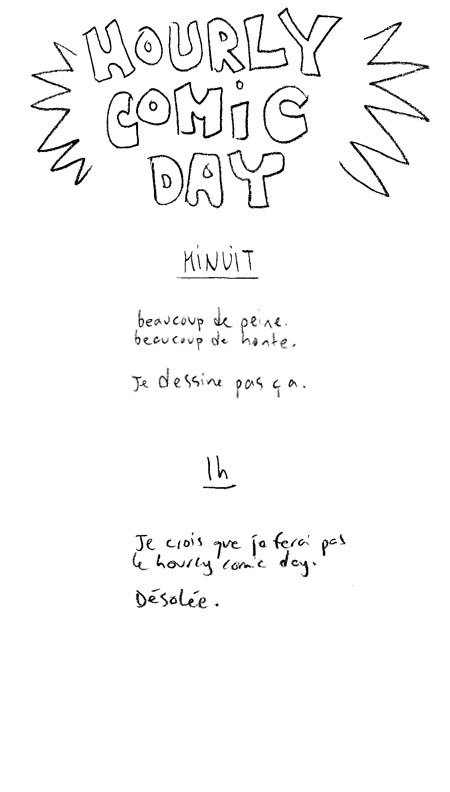 HOURLY
COMiC
DAY
MiNUiT
beaucoup de peine.
beaucoup de honte.
Je dessine pas ça.
1h
Je crois que je ferai pas
le hourly comic day.
Désolée.